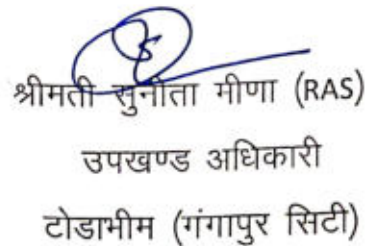 श्रीमती सुनीता मीणा (RAS)
उपखण्ड अधिकारी
टोडाभीम (गंगापुर सिटी)